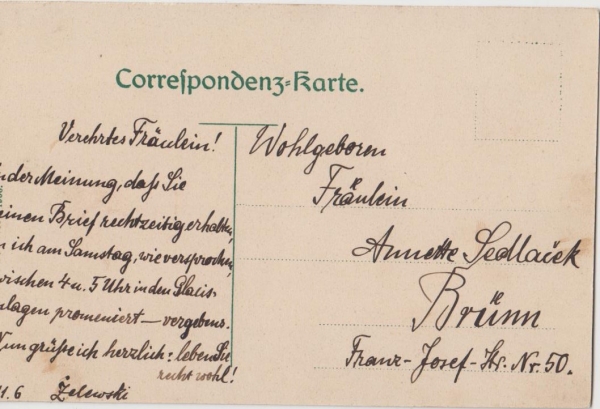 Correspondenz-Karte.
Verehrtes Fräulein!
In der Meinung, daß Sie
meinen Brief rechtzeitig erhalten,
ich am Samstag, wie versprochen,
zwischen 4 u. 5 Uhr in den Glacis-
anlagen promeniert — vergebens.
Nun grüße ich herzlich: leben Sie
recht wohl!
1.6 Želewski
Wohlgeboren
Fräulein
Annette Sedlaček
Brünn
Franz-Josef-Str. Nr. 50.